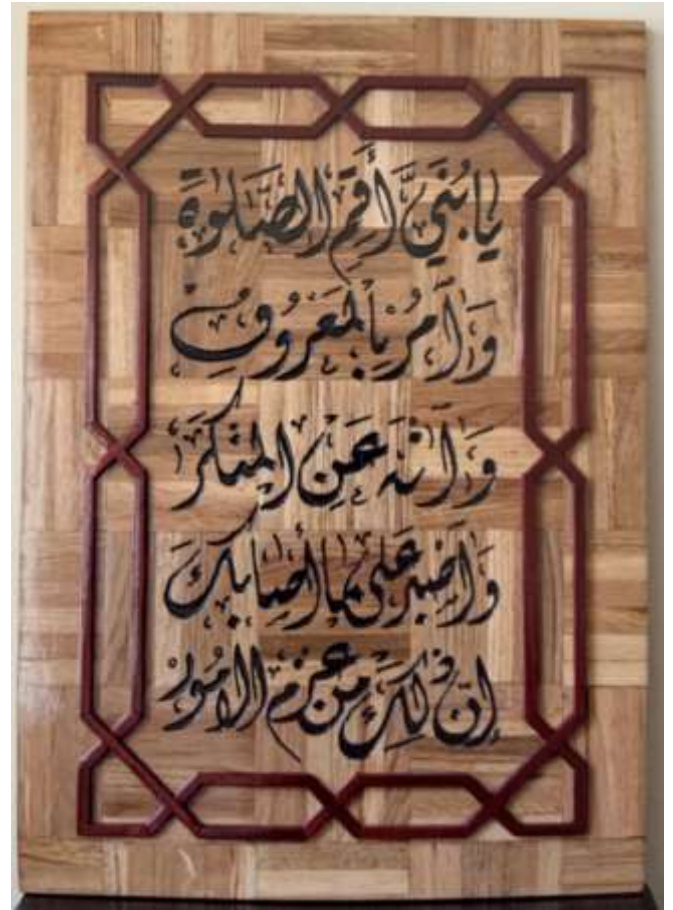 يَا بُنَيَّ أَقِمِ الصَّلَوةَ
وَأْمُرْ بِالْمَعْرُوفِ
وَانْهَ عَنِ الْمُنْكَرِ
وَاصْبِرْ عَلَى مَا أَصَابَكَ
إِنَّ ذَلِكَ مِنْ عَزْمِ الْأُمُورِ